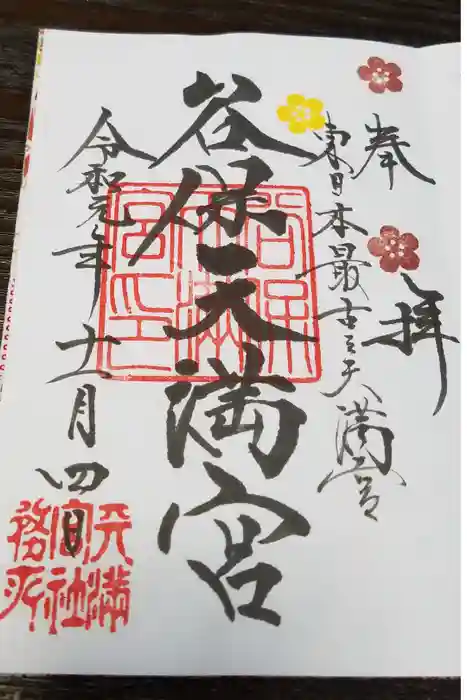 奉拝
東日本最古之天満宮
谷保天満宮
令和元年十一月四日
谷保天満宮之印
天満宮社務所